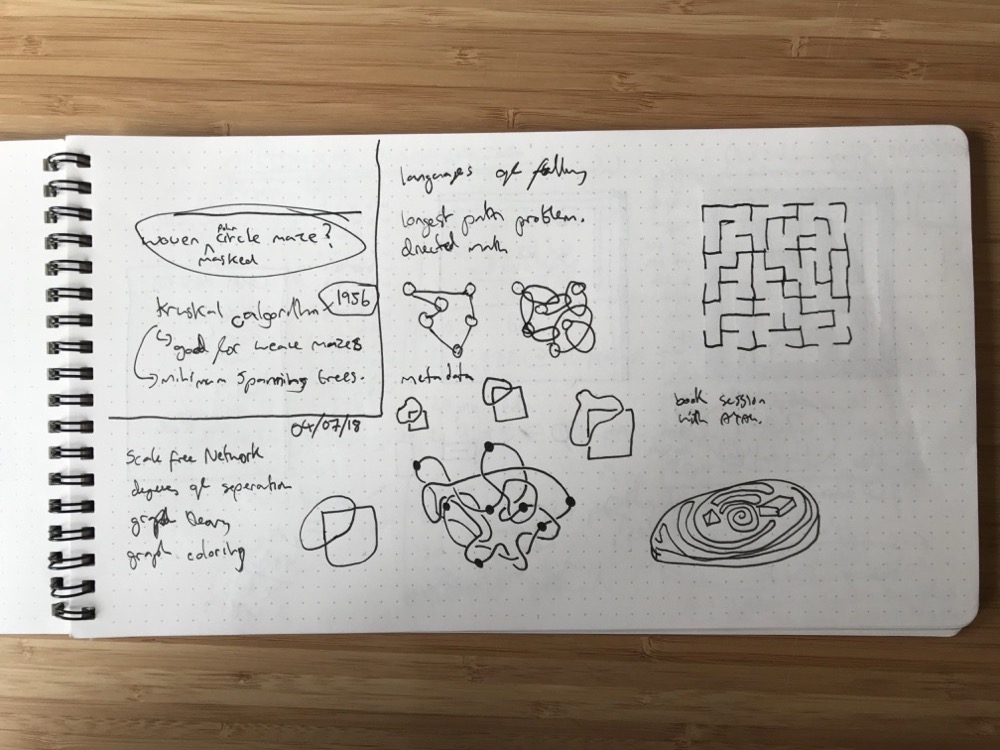 woven circle maze?
masked
Kruskal algorithm 1956
good for weave mazes
minimum spanning trees.
04/07/18
Scale free Network
degrees of seperation
graph theory
graph coloring
languages of
longest path problem.
directed
metadata
book session
with